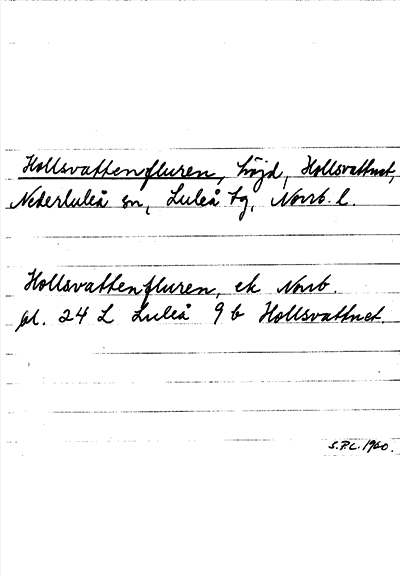 Hollsvattenfluren, höjd, Hollsvattnet,
Nederluleå sn, Luleå tg, Norrb. l.
Hollsvattenfluren, ek Norrb.
bl. 24 L Luleå 9 b Hollsvattnet.
S.P.L. 1960.